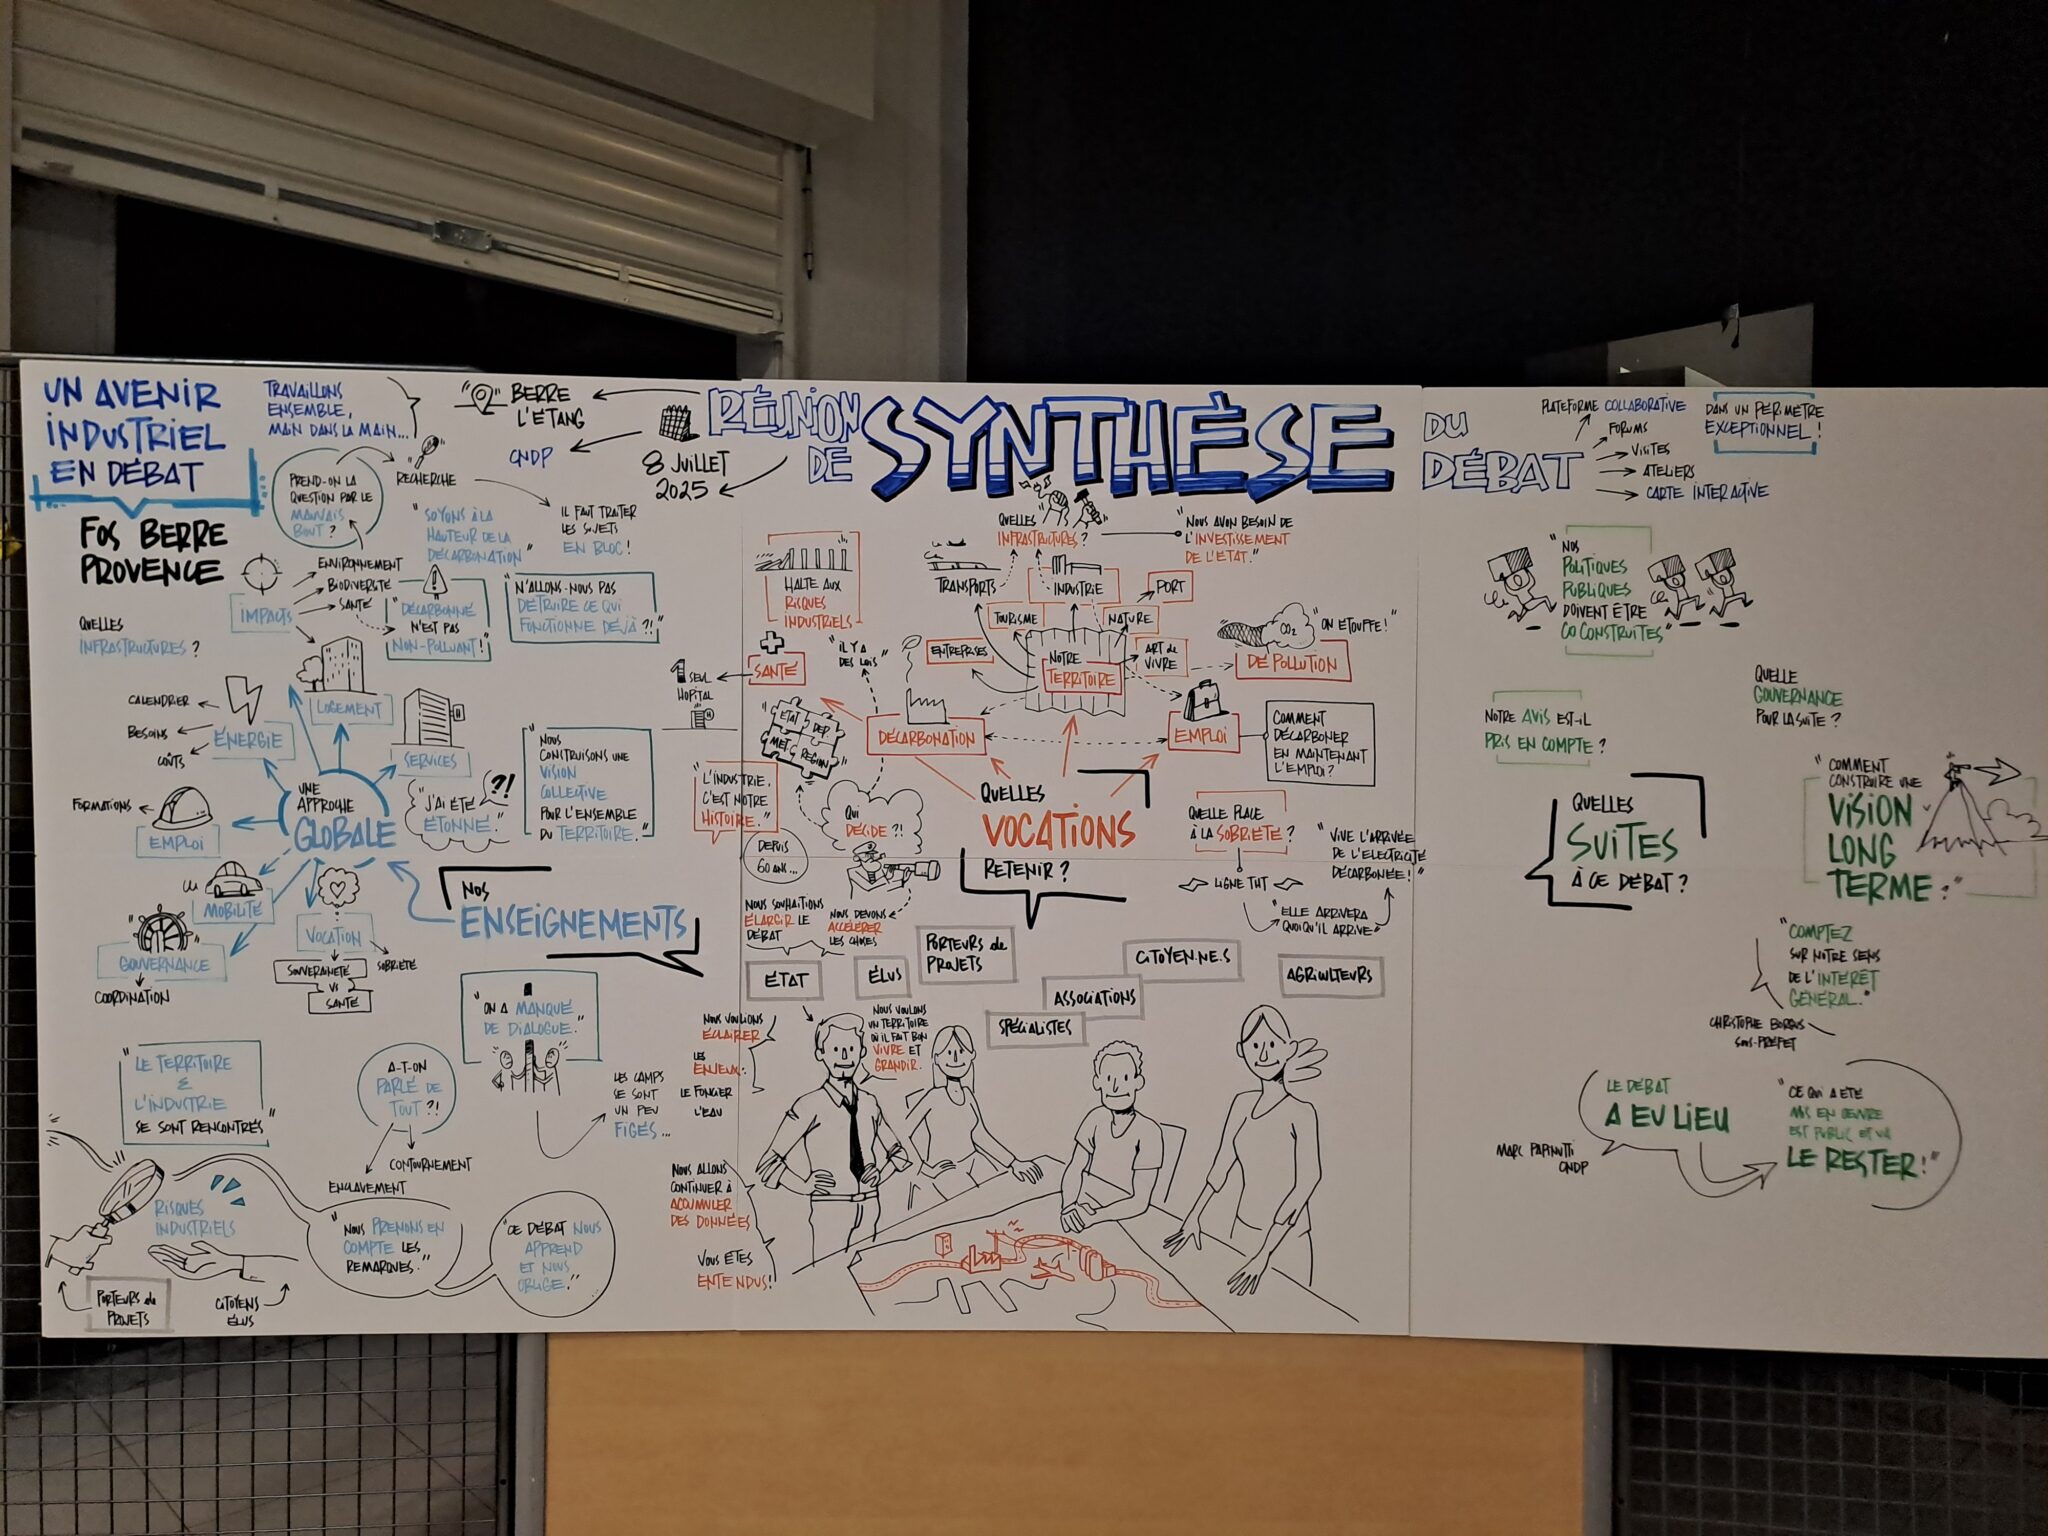 UN AVENIR
INDUSTRIEL
EN DÉBAT
FOS BERRE
PROVENCE
TRAVAILLONS
ENSEMBLE,
MAIN DANS LA MAIN...
BERRE
L'ÉTANG
CNDP
8 JUILLET
2025
RÉUNION
DE
SYNTHÈSE
DU
DÉBAT
PLATEFORME COLLABORATIVE
FORUMS
VISITES
ATELIERS
CARTE INTERACTIVE
DANS UN PÉRIMÈTRE
EXCEPTIONNEL !
PREND-ON LA
QUESTION PAR LE
MAUVAIS
BOUT ?
RECHERCHE
"SOYONS À LA
HAUTEUR DE LA
DÉCARBONATION"
IL FAUT TRAITER
LES SUJETS
EN BLOC !
IMPACTS
ENVIRONNEMENT
BIODIVERSITÉ
SANTÉ
"DÉCARBONNÉ
N'EST PAS
NON-POLLUANT !"
"N'ALLONS-NOUS PAS
DÉTRUIRE CE QUI
FONCTIONNE DÉJÀ ?!"
QUELLES
INFRASTRUCTURES ?
LOGEMENT
CALENDRIER
BESOINS
COÛTS
ÉNERGIE
SERVICES
UNE
APPROCHE
GLOBALE
FORMATIONS
EMPLOI
MOBILITÉ
GOUVERNANCE
COORDINATION
VOCATION
SOBRIÉTÉ
SOUVERAINETÉ
VS
SANTÉ
"J'AI ÉTÉ
ÉTONNÉ."
?!
"NOUS
CONSTRUISONS UNE
VISION
COLLECTIVE
POUR L'ENSEMBLE
DU TERRITOIRE."
NOS
ENSEIGNEMENTS
"ON A MANQUÉ
DE DIALOGUE."
LES CAMPS
SE SONT
UN PEU
FIGÉS...
"LE TERRITOIRE
&
L'INDUSTRIE
SE SONT RENCONTRÉS"
A-T-ON
PARLÉ DE
TOUT ?!
CONTOURNEMENT
ENCLAVEMENT
RISQUES
INDUSTRIELS
PORTEURS de
PROJETS
CITOYENS
ÉLUS
"NOUS PRENONS EN
COMPTE LES
REMARQUES."
"CE DÉBAT NOUS
APPREND
ET NOUS
OBLIGE."
HALTE AUX
RISQUES
INDUSTRIELS
SANTÉ
1 SEUL
HOPITAL
H
"IL Y A
DES LOIS"
ÉTAT
DEP.
MET
RÉGION
"L'INDUSTRIE,
C'EST NOTRE
HISTOIRE."
DEPUIS
60 ANS...
QUI
DÉCIDE ?!
NOUS SOUHAITIONS
ÉLARGIR LE
DÉBAT
NOUS DEVONS
ACCÉLÉRER
LES CHOSES
QUELLES
INFRASTRUCTURES ?
"NOUS AVON BESOIN DE
L'INVESTISSEMENT
DE L'ÉTAT."
TRANSPORTS
INDUSTRIE
PORT
TOURISME
NATURE
ENTREPRISES
NOTRE
TERRITOIRE
ART de
VIVRE
CO2
"ON ÉTOUFFE !"
DÉPOLLUTION
DÉCARBONATION
EMPLOI
COMMENT
DÉCARBONER
EN MAINTENANT
L'EMPLOI ?
QUELLES
VOCATIONS
RETENIR ?
QUELLE PLACE
À LA SOBRIÉTÉ ?
LIGNE THT
"ELLE ARRIVERA
QUOIQU'IL ARRIVE"
"VIVE L'ARRIVÉE
DE L'ÉLECTRICITÉ
DÉCARBONÉE !"
ÉTAT
ÉLUS
PORTEURS de
PROJETS
SPÉCIALISTES
ASSOCIATIONS
CITOYEN.NE.S
AGRICULTEURS
NOUS VOULIONS
ÉCLAIRER
LES
ENJEUX :
LE FONCIER
L'EAU
NOUS VOULONS
UN TERRITOIRE
OÙ IL FAIT BON
VIVRE ET
GRANDIR.
NOUS ALLONS
CONTINUER À
ACCUMULER
DES DONNÉES
VOUS ÊTES
ENTENDUS !
"NOS
POLITIQUES
PUBLIQUES
DOIVENT ÊTRE
CO CONSTRUITES"
NOTRE AVIS EST-IL
PRIS EN COMPTE ?
QUELLE
GOUVERNANCE
POUR LA SUITE ?
QUELLES
SUITES
À CE DÉBAT ?
"COMMENT
CONSTRUIRE UNE
VISION
LONG
TERME ?"
"COMPTEZ
SUR NOTRE SENS
DE L'INTÉRÊT
GÉNÉRAL."
CHRISTOPHE BORGUS
SOUS-PRÉFET
LE DÉBAT
A EU LIEU
MARC PAPINUTTI
CNDP
"CE QUI A ÉTÉ
MIS EN ŒUVRE
EST PUBLIC ET VA
LE RESTER !"